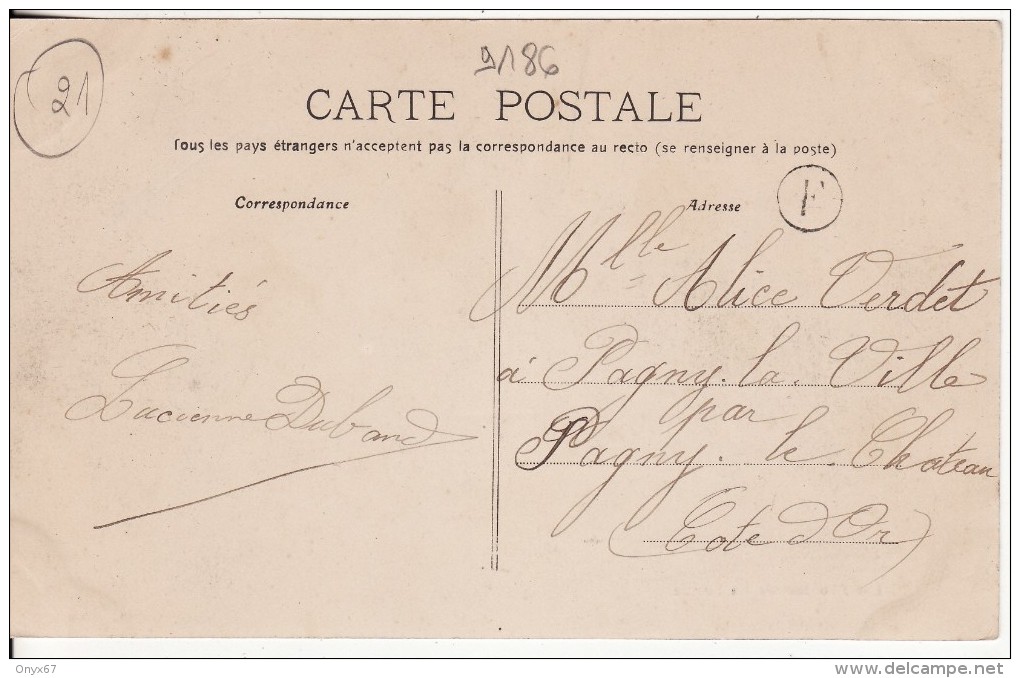 21
9186
CARTE POSTALE
Tous les pays étrangers n'acceptent pas la correspondance au recto (se renseigner à la poste)
Correspondance
Amitiés
Lucienne Duband
Adresse
F
Mlle Alice Verdet
à Pagny. la. Ville
par
Pagny. le. Chateau
(Cote d'Or)
Onyx67
www.delcampe.net